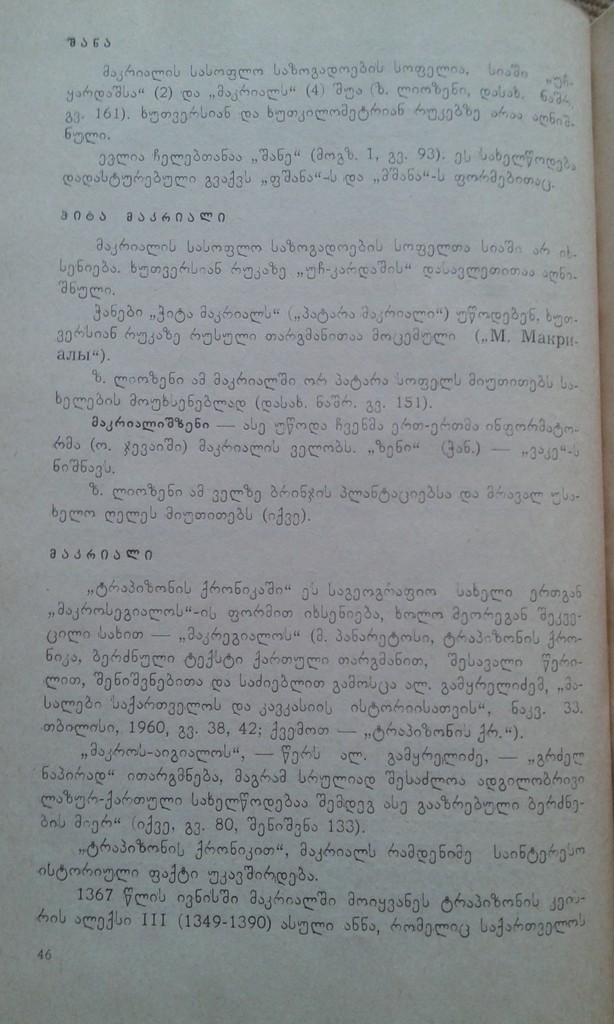 შანა
მაკრიალის სასოფლო საზოგადოების სოფელია, სიაში „უჩ-
ყარდაშსა“ (2) და „მაკრიალს“ (4) შუა (ზ. ლიოზენი, დასახ. ნაშრ.
გვ. 161). ხუთვერსიან და ხუთკილომეტრიან რუკებზე არაა აღნიშ-
ნული.
ევლია ჩელებთანაა „შანე“ (მოგზ. I, გვ. 93). ეს სახელწოდება
დადასტურებული გვაქვს „ფშანა“-ს და „მშანა“-ს ფორმებითაც.
ჭიტა მაკრიალი
მაკრიალის სასოფლო საზოგადოების სოფელთა სიაში არ იხ-
სენიება. ხუთვერსიან რუკაზე „უჩ-კარდაშის“ დასავლეთითაა აღნი-
შნული.
ჭანები „ჭიტა მაკრიალს“ („პატარა მაკრიალი“) უწოდებენ, ხუთ-
ვერსიან რუკაზე რუსული თარგმანითაა მოცემული („М. Макри-
алы“).
ზ. ლიოზენი ამ მაკრიალში ორ პატარა სოფელს მიუთითებს სა-
ხელების მოუხსენებლად (დასახ. ნაშრ. გვ. 151).
მაკრიალიშზენი — ასე უწოდა ჩვენმა ერთ-ერთმა ინფორმატო-
რმა (ო. ჯევაიში) მაკრიალის ველობს. „ზენი“ (ჭან.) — „ვაკე“-ს
ნიშნავს.
ზ. ლიოზენი ამ ველზე ბრინჯის პლანტაციებსა და მრავალ უსა-
ხელო ღელეს მიუთითებს (იქვე).
მაკრიალი
„ტრაპიზონის ქრონიკაში“ ეს საგეოგრაფიო სახელი ერთგან
„მაკროსეგიალოს“-ის ფორმით იხსენიება, ხოლო მეორეგან შეკვე-
ცილი სახით — „მაკრეგიალოს“ (მ. პანარეტოსი, ტრაპიზონის ქრო-
ნიკა, ბერძნული ტექსტი ქართული თარგმანით, შესავალი წერი-
ლით, შენიშვნებითა და საძიებლით გამოსცა ალ. გამყრელიძემ, „მა-
სალები საქართველოს და კავკასიის ისტორიისათვის“, ნაკვ. 33.
თბილისი, 1960, გვ. 38, 42; ქვემოთ — „ტრაპიზონის ქრ.“).
„მაკროს-აიგიალოს“, — წერს ალ. გამყრელიძე, — „გრძელ
ნაპირად“ ითარგმნება, მაგრამ სრულიად შესაძლოა ადგილობრივი
ლაზურ-ქართული სახელწოდებაა შემდეგ ასე გააზრებული ბერძნე-
ბის მიერ“ (იქვე, გვ. 80, შენიშვნა 133).
„ტრაპიზონის ქრონიკით“, მაკრიალს რამდენიმე საინტერესო
ისტორიული ფაქტი უკავშირდება.
1367 წლის ივნისში მაკრიალში მოიყვანეს ტრაპიზონის კეის-
რის ალექსი III (1349-1390) ასული ანნა, რომელიც საქართველოს
46